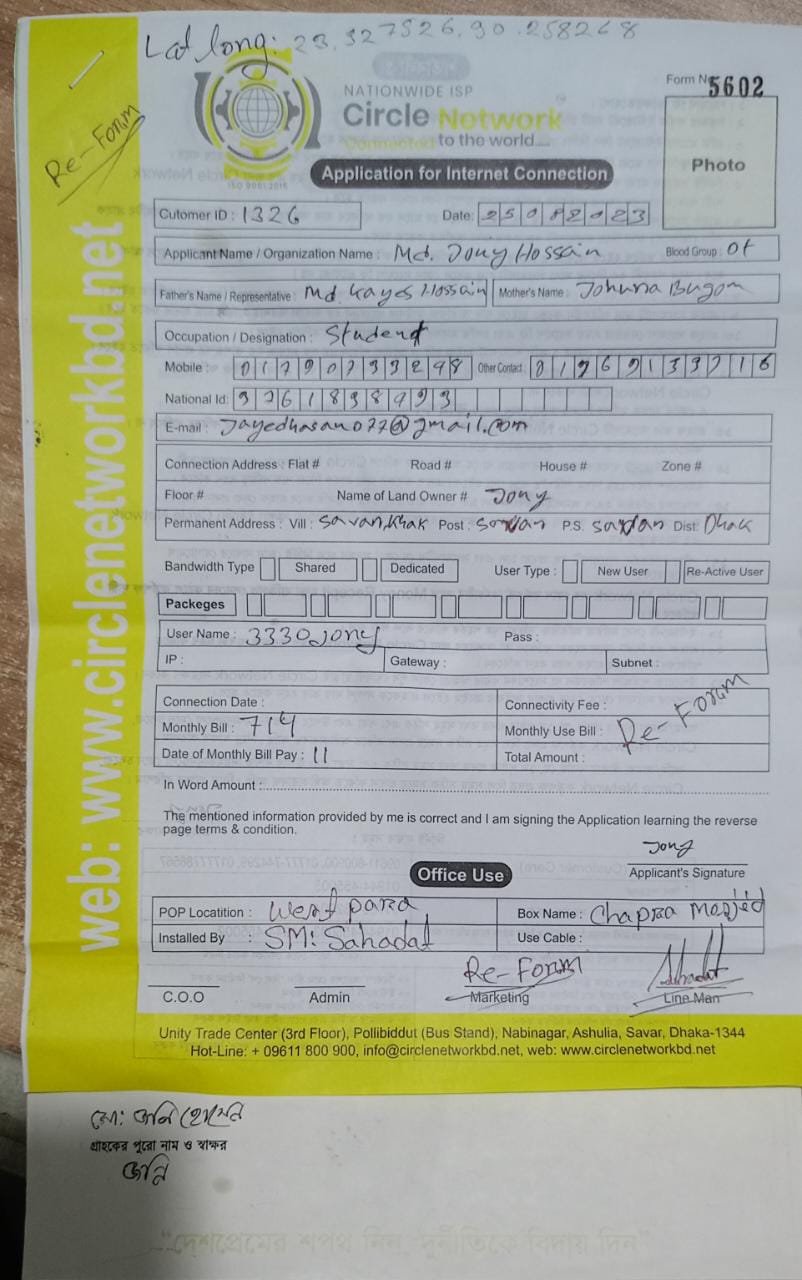 Lat long: 23.927526.90.258268
Re-Form
NATIONWIDE ISP
Circle Network
Connected to the world....
ISO 9001:2015
Form No 5602
Photo
Application for Internet Connection
Cutomer ID : 1326 Date: 25082023
Applicant Name / Organization Name : Md. Jony Hossain Blood Group : O+
Father's Name / Representative : Md Kayes Hossain Mother's Name : Johura Bugom
Occupation / Designation : Student
Mobile : Other Contact :
National Id:
E-mail : Jayedhasan077@gmail.com
Connection Address : Flat # Road # House # Zone #
Floor # Name of Land Owner # Jony
Permanent Address : Vill : Post : P.S. Dist: Dhak
Bandwidth Type Shared Dedicated User Type : New User Re-Active User
Packeges
User Name : 3330jony Pass :
IP : Gateway : Subnet :
Connection Date : Connectivity Fee :
Monthly Bill : 714 Monthly Use Bill : Re-Form
Date of Monthly Bill Pay : 11 Total Amount :
In Word Amount :
The mentioned information provided by me is correct and I am signing the Application learning the reverse
page terms & condition.
Jony
Applicant's Signature
Office Use
POP Locatition : West para Box Name : Chapra Masjid
Installed By : SM: Sahadat Use Cable :
Re-Form Sahadat
C.O.O Admin Marketing Line Man
Unity Trade Center (3rd Floor), Pollibiddut (Bus Stand), Nabinagar, Ashulia, Savar, Dhaka-1344
Hot-Line: + 09611 800 900, info@circlenetworkbd.net, web: www.circlenetworkbd.net
web: www.circlenetworkbd.net
মো: জনি হোসেন
গ্রাহকের পুরো নাম ও স্বাক্ষর
জনি
"দেশপ্রেমের শপথ নিন, দুর্নীতিকে বিদায় দিন"